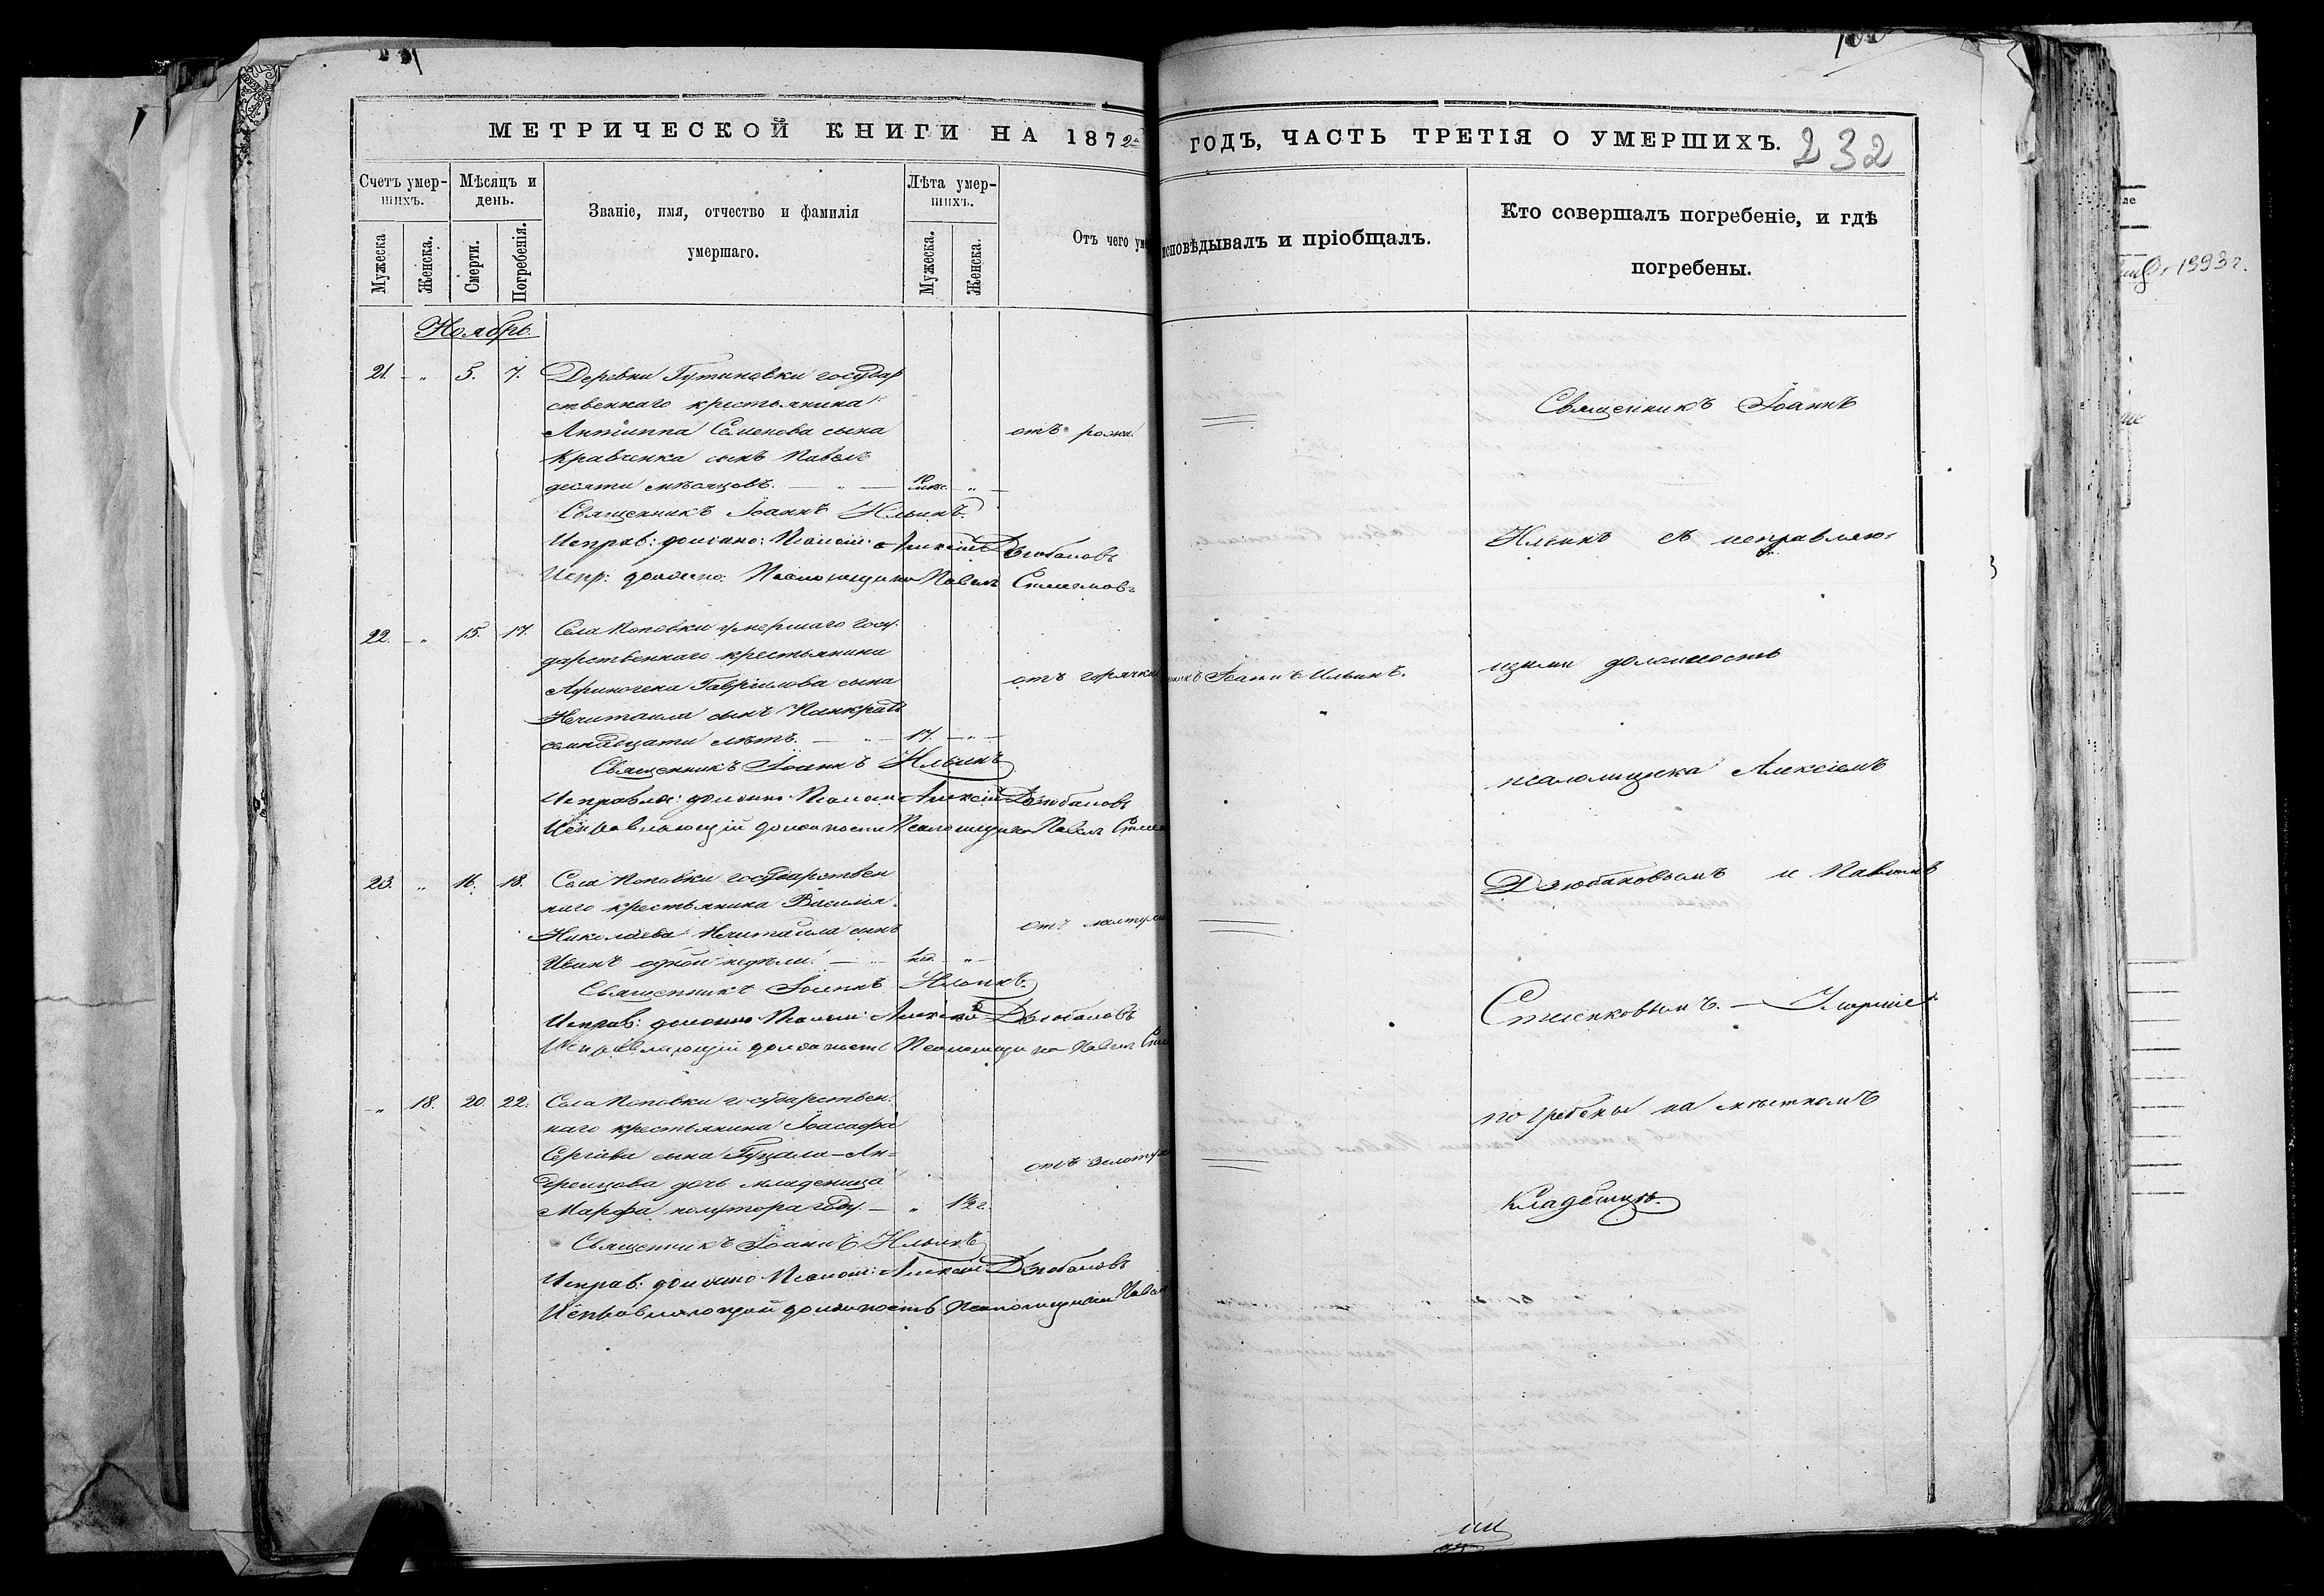 МЕТРИЧЕСКОЙ КНИГИ НА 1872й
ГОДЪ, ЧАСТЬ ТРЕТІЯ О УМЕРШИХЪ.
232
Счетъ умер-
шихъ.
Мужеска
Женска.
Мѣсяцъ и
день.
Смерти.
Погребенія.
Званіе, имя, отчество и фамилія
умершаго.
Лѣта умер-
шихъ.
Мужеска.
Женска.
Отъ чего уме
исповѣдывалъ и пріобщалъ.
Кто совершалъ погребеніе, и гдѣ
погребены.
Ноябрь.
21. " 5. 7. Деревни государ
ственнаго крестьянина
Антиппа Семенова сына
отъ
Кравченка сынъ Павелъ
десяти мѣсяцовъ. — " — 10 мѣс. "
Священникъ Іоаннъ Ильинъ.
Исправ: должно: Псалом: Алексій Дзюбановъ
Испр: должно: Псаломщика Павелъ
22. " 15. 17. Села Поповки умершаго госу-
дарственнаго крестьянина
Гавріилова сына
отъ горячки
Іоаннъ Ильинъ.
Нечитаила сынъ Панкратъ
семнадцати лѣтъ. — " — 17. — " —
Священникъ Іоаннъ Ильинъ
должно Псалом Алексій Дзюбановъ
Исправляющій должность Псаломщика Павелъ
23. " 16. 18. Села Поповки государствен
наго крестьянина Василія
Николаева Нечитаила сынъ
отъ
Иванъ одной недѣли. — " 1 нед. "
Священникъ Іоаннъ Ильинъ.
Исправ: должно Псалом: Алексій Дзюбановъ
Исправляющій должность Псаломщика Павелъ
" 18. 20. 22. Села Поповки государствен-
наго крестьянина Іоасафа
Сергіева сына Гуцала-Ан-
отъ золотухи
дреицова дочь младеница
Марфа полутора году. — " 1½ г.
Священникъ Іоаннъ Ильинъ
Исправ: должно Псалом: Алексій Дзюбановъ
Исправляющій должность Псаломщика Павелъ
Священникъ Іоаннъ
Ильинъ съ исправляю-
щими должность
псаломщика Алексіемъ
Дзюбановымъ и Павломъ
Стиленковымъ. — Умершіе
погребены на мѣстномъ
кладбищѣ.
1993 г.